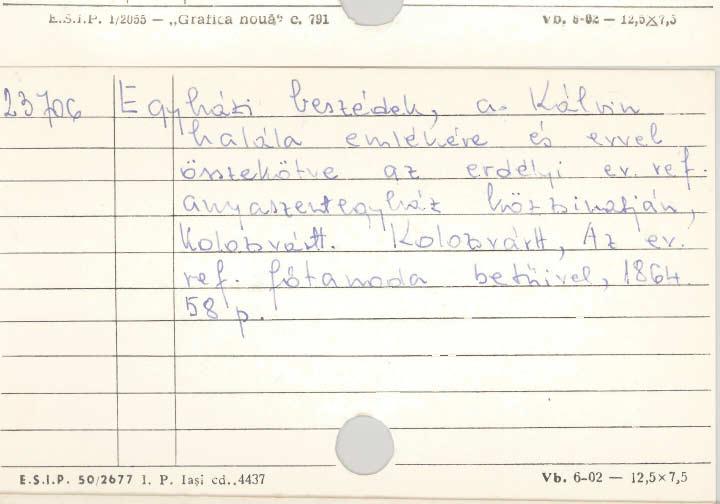 E.S.I.P. 1/2055 — „Grafica nouă" c. 791 Vb. 6-02 — 12,5×7,5
23706 Egyházi beszédek, a Kálvin
halála emlékére és evvel
összekötve az erdélyi ev. ref.
anyaszentegyház közzsinatján,
Kolozvártt. Kolozvártt, Az ev.
ref. főtanoda betűivel, 1864.
58 p.
E.S.I.P. 50/2677 I. P. Iași cd..4437 Vb. 6-02 — 12,5×7,5